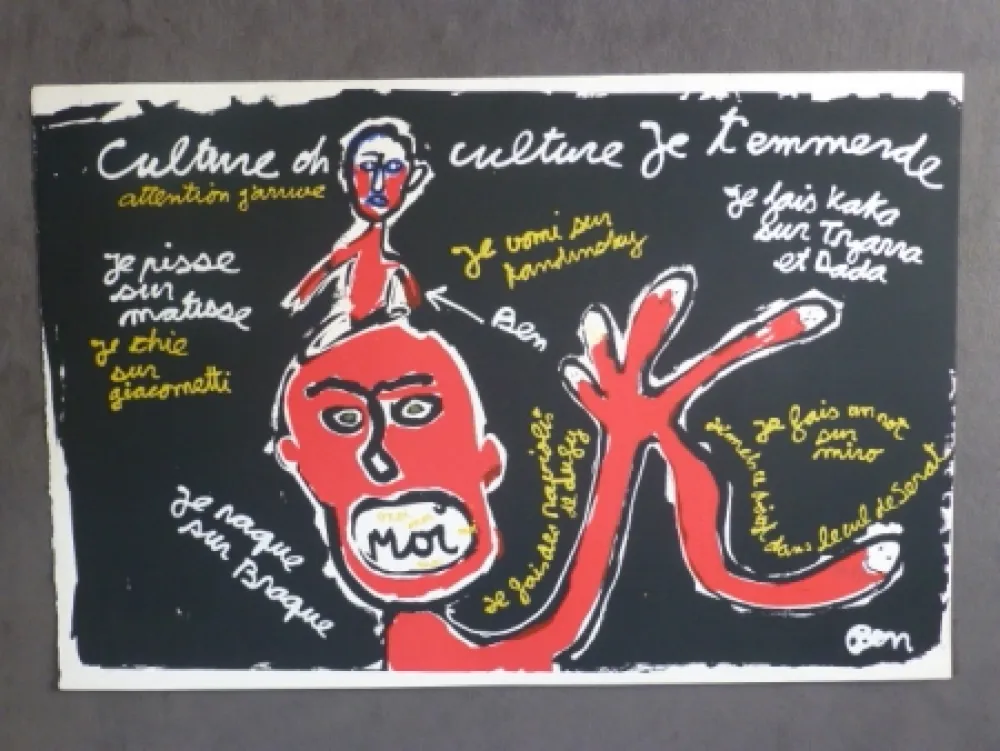 Culture oh culture Je t'emmerde
attention j'arrive
Je pisse
sur
matisse
Je chie
sur
giacometti
Je vomi sur
Kandinsky
Je fais Kaka
sur Tzarra
et Dada
Ben
Je fais un rot
sur
miro
dans le cul de Serat
Je fais des raviolis
de dufy
Je raque
sur Braque
MOI
Ben